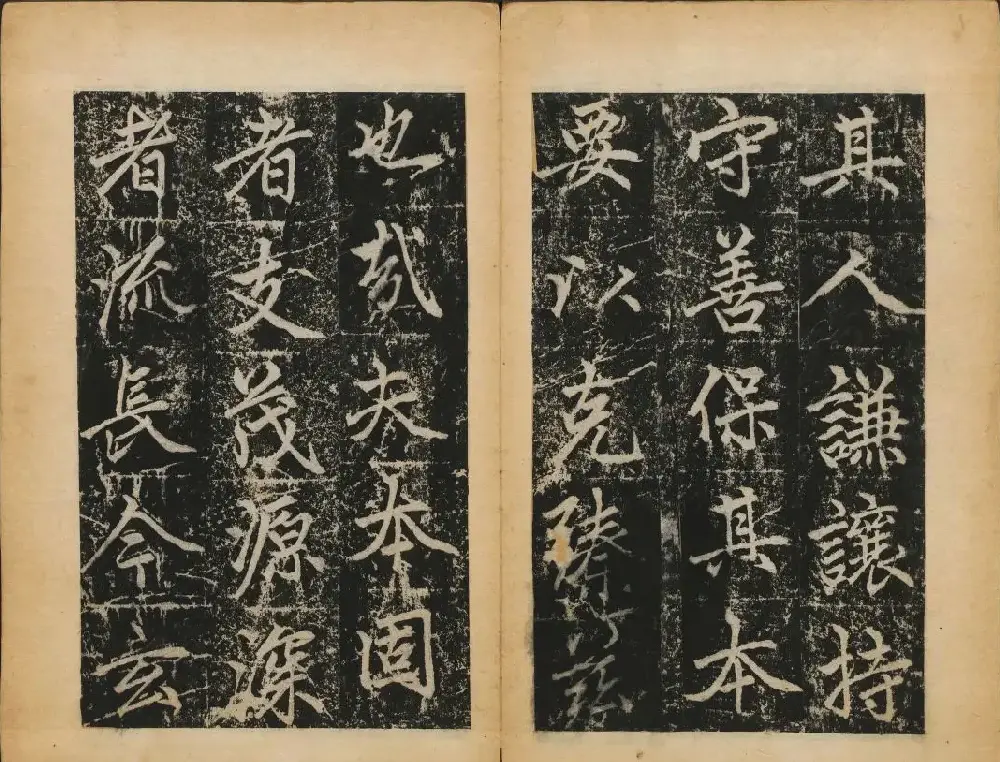 其人謙讓持
守善保其本
要以克臻
也哉夫本固
者支茂源深
者流長今玄